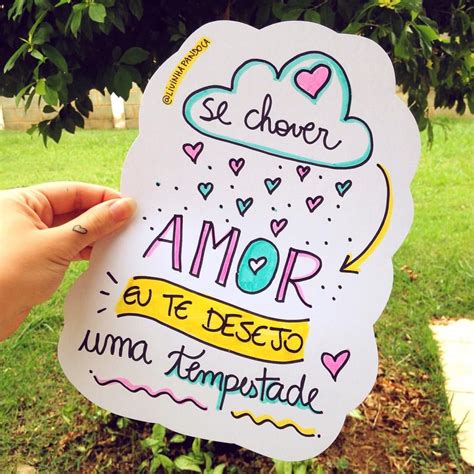 @LIVINHAPANDOCA
se chover
AMOR
EU TE DESEJO
uma tempestade